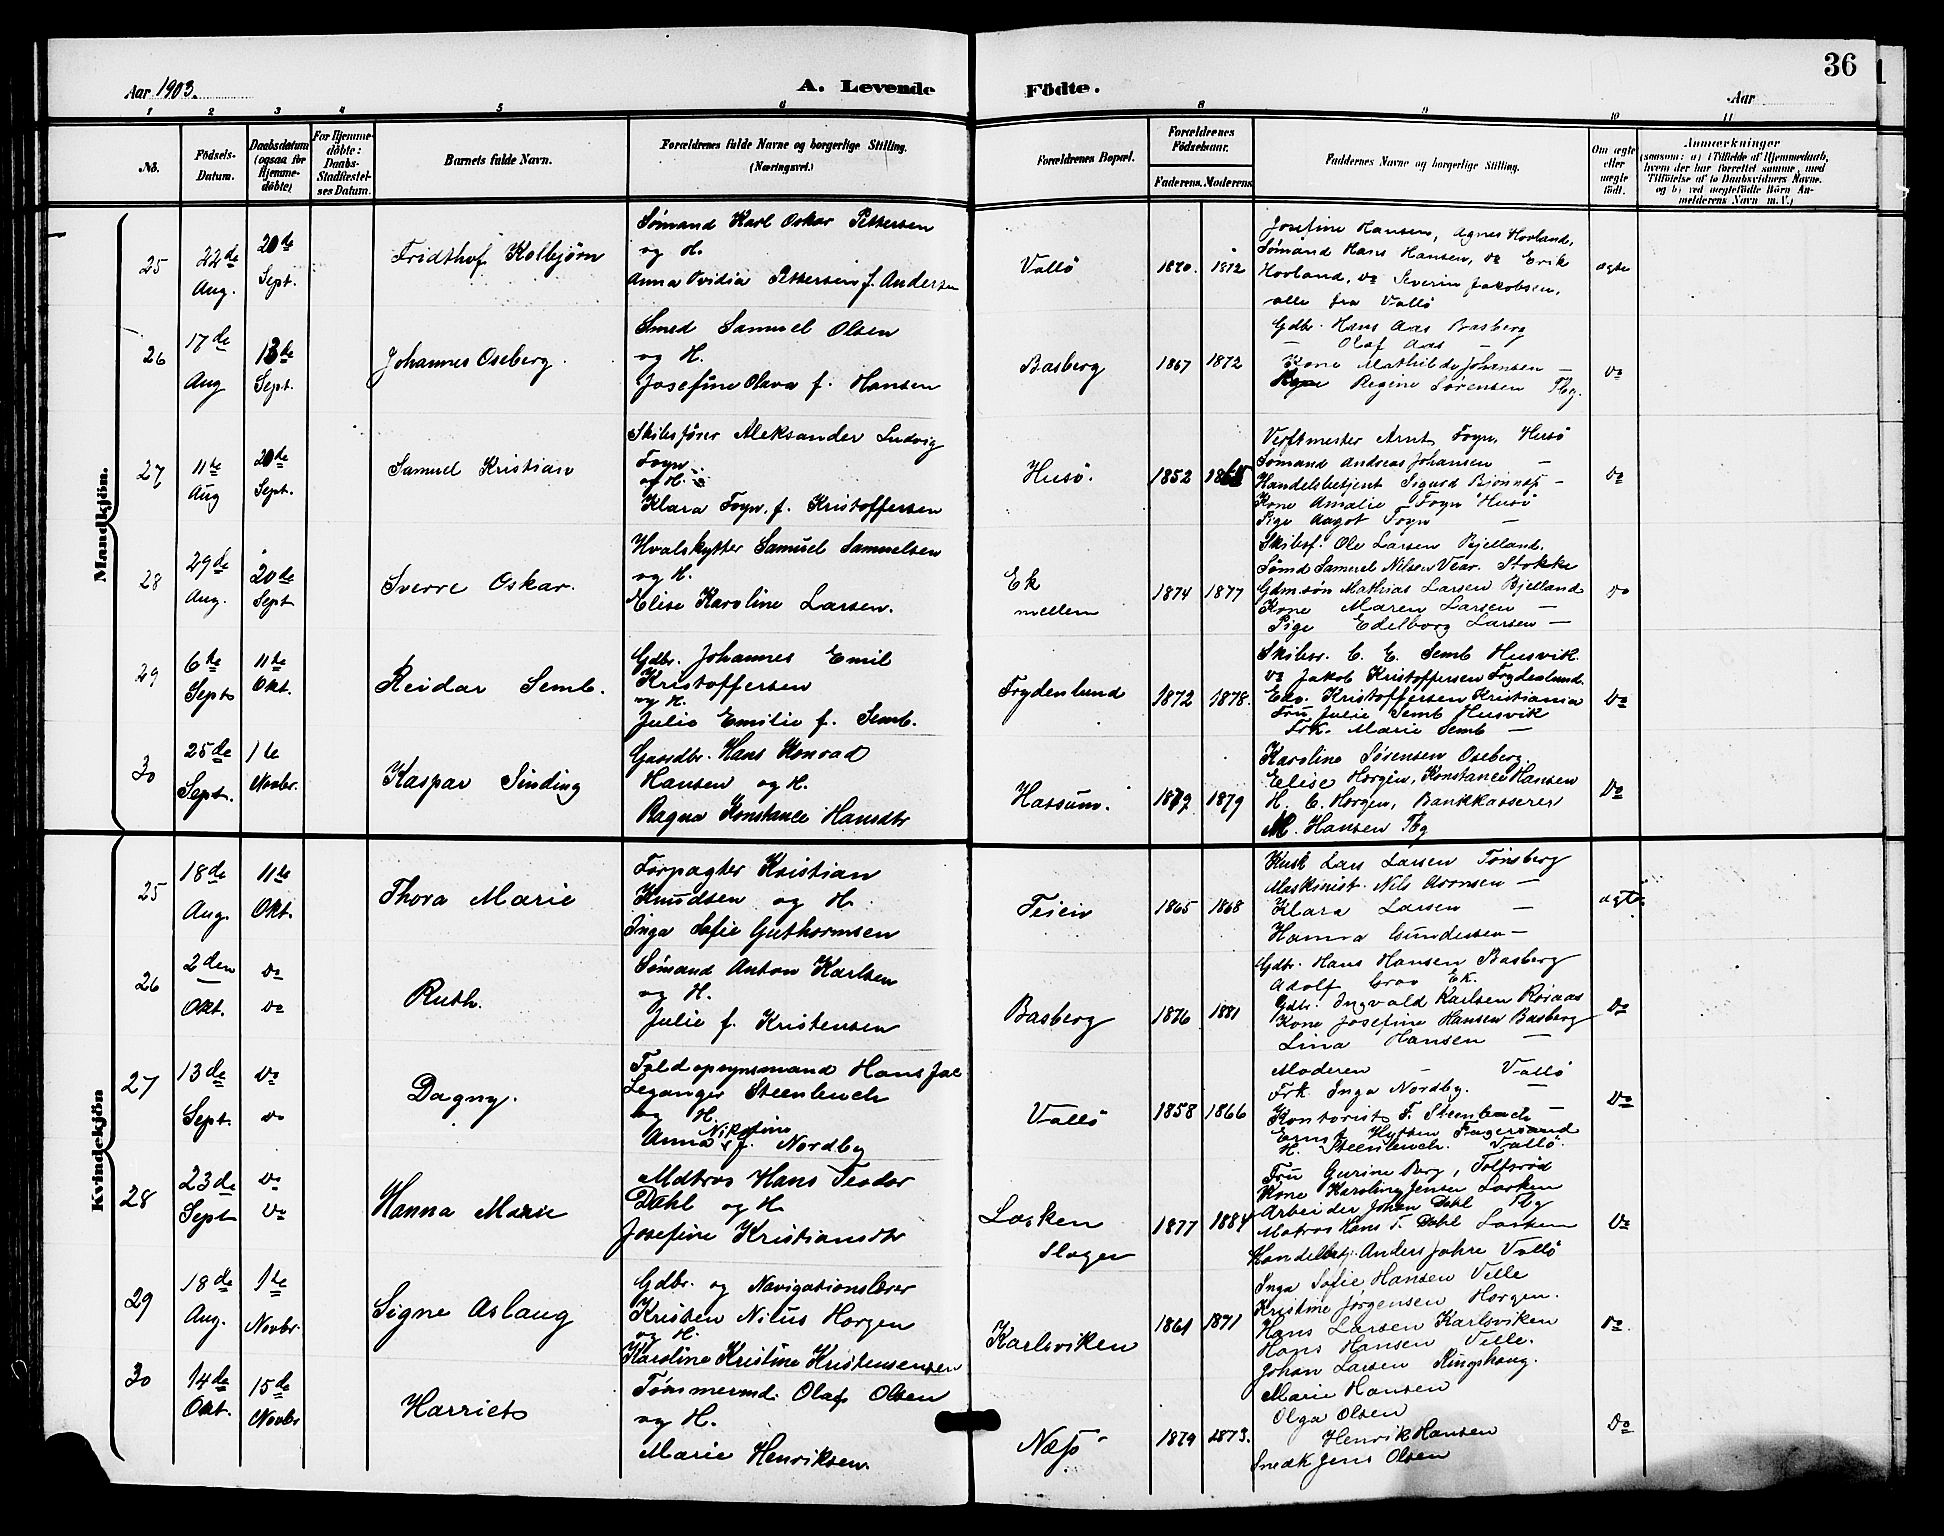 36
Aar 1903.
A. Levende
Födte.
Aar
1 2 3 4 5 6 8 9 10 11
No.
Födsels-
Datum.
Daabsdatum
(ogsaa for
Hjemme-
döbte)
For Hjemme-
döbte:
Daabs-
Stadfæstel-
ses Datum.
Barnets fulde Navn.
Forældrenes fulde Navne og borgerlige Stilling.
(Næringsvei.)
Forældrenes Bopæl.
Forældrenes
Födselsaar.
Faderens. Moderens
Faddernes Navne og borgerlige Stilling.
Om ægte
eller
uægte
födt.
Anmærkninger
(saasom: a) i Tilfælde af Hjemmedaab,
hvem der har forrettet samme, med
Tilföielse af to Daabsvidners Navne.
og b) ved uægtefödte Börn An-
melderens Navn m. V.)
Mandkjön.
25
22de
Aug.
20de
Sept.
Fridthof Kolbjørn
Sømand Karl Oskar Pettersen
og H.
Anna Ovidia Pettersen f. Andersen
Vallö
1870. 1872
Josefine Hansen, Agnes Hovland,
Sømand Hans Hansen, do Erik
Hovland, do Severin Jakobsen,
alle fra Vallö
ægte
26
17de
Aug
13de
Sept.
Johannes Oseberg.
Smed Samuel Olsen
og H.
Josefine Olava f. Hansen
Basberg
1867 1872
Gdbr. Hans Aas Basberg
– Olaf Aas –
Kone Mathilde Johansen –
Regine Sørensen Tbg.
do
27
11te
Aug
20de
Sept.
Samuel Kristian
Skibsfører Aleksander Ludvig
Foyn
og H.
Klara Foyn, f. Kristoffersen
Husö.
1852
Verftmester Arnt Foyn, Husö
Sømand Andreas Johansen –
Handelsbetjent Sigurd –
Kone Amalie Foyn Husö
Pige Aagot Foyn –
do
28
29de
Aug.
20de
Sept
Sverre Oskar.
Hvalskytter Samuel Samuelsen
og H.
Elise Karoline Larsen.
Ek
mellem
1874 1877
Skibsf. Ole Larsen Bjelland.
Sömd Samuel Nilsen Vear. Stokke
Gdm.søn Mathias Larsen Bjelland
Kone Maren Larsen –
Pige Edelborg Larsen –
do
29
6te
Sept
11te
Okt.
Reidar Semb.
Gdbr. Johannes Emil
Kristoffersen
og H.
Julie Emilie f. Semb.
Frydenlund
1872 1878.
Skibsr. C. E. Semb Husvik.
do Jakob Kristoffersen Frydenlund
Edv. Kristoffersen Kristiania
Fru Julie Semb Husvik
Frk. Marie Semb –
do
30
25de
Sept.
1te
Novbr.
Kaspar Sinding
Gaardbr. Hans Konrad
Hansen og H.
Ragna Konstance Hansdtr
Hassum.
1872 1879
Karoline Sørensen Oseberg.
Elise Horgen, Konstance Hansen
H. C. Horgen, Bankkasserer
M. Hansen Tbg
do
Kvindekjön
25
18de
Aug.
11te
Okt.
Thora Marie
Forpagter Kristian
Knudsen og H.
Inga Sofie Guthormsen
Teien
1865 1868
Kusk Lars Larsen Tønsberg
Maskinist Nils Aronsen –
Klara Larsen –
Hanna Gundersen –
ægte
26
2den
Okt.
do
do
Ruth.
Sømand Anton Karlsen
og H.
Julie f. Kristensen
Basberg
1876 1881
Gdbr. Hans Hansen Basberg
Adolf Grav Ek.
Gdbr. Ingvald Karlsen Røraas
Kone Josefine Hansen Basberg
Lina Hansen –
do
27
13de
Sept.
do
do
Dagny.
Toldopsynsmand Hans Jac
Leganger Steenbuch
og H.
Anna Nikoline f. Nordby
Vallö
1858 1866
Moderen – Vallö
Frk. Inga Nordby. –
Kontorist F. Steenbuch –
Ernst Hytten Fagerstrand
H. Steenbuch. Vallö.
do
28
23de
Sept
do
do
Hanna Marie
Matros Hans Teodor
Dahl og H.
Josefine Kristiansdtr
Lasken
Slagen
1877 1884
Fru Gurine Berg, Tolfsrød
Kone Karoline Jensen Lasken
Arbeider Johan Dahl Tbg
Matros Hans T. Dahl Lasken
Handelbetj. Anders Jahre Vallö
do
29
18de
Aug.
1te
Novbr.
Signe Aslaug
Gdbr. og Navigationslærer
Kristen Nilus Horgen
og H.
Karoline Kristine Kristensen
Karlsviken
1861 1871
Inga Sofie Hansen Velle
Kristine Jørgensen Horgen.
Hans Larsen Karlsviken
Hans Hansen Velle.
Johan Larsen Ringshaug.
do.
30
14de
Okt.
15de
Novbr
Harriet
Tömmermd. Olaf Olsen
og H.
Marie Henriksen.
Næs
1879 1873.
Marie Hansen
Olga Olsen
Henrik Hansen
Snedk Jens Olsen
do